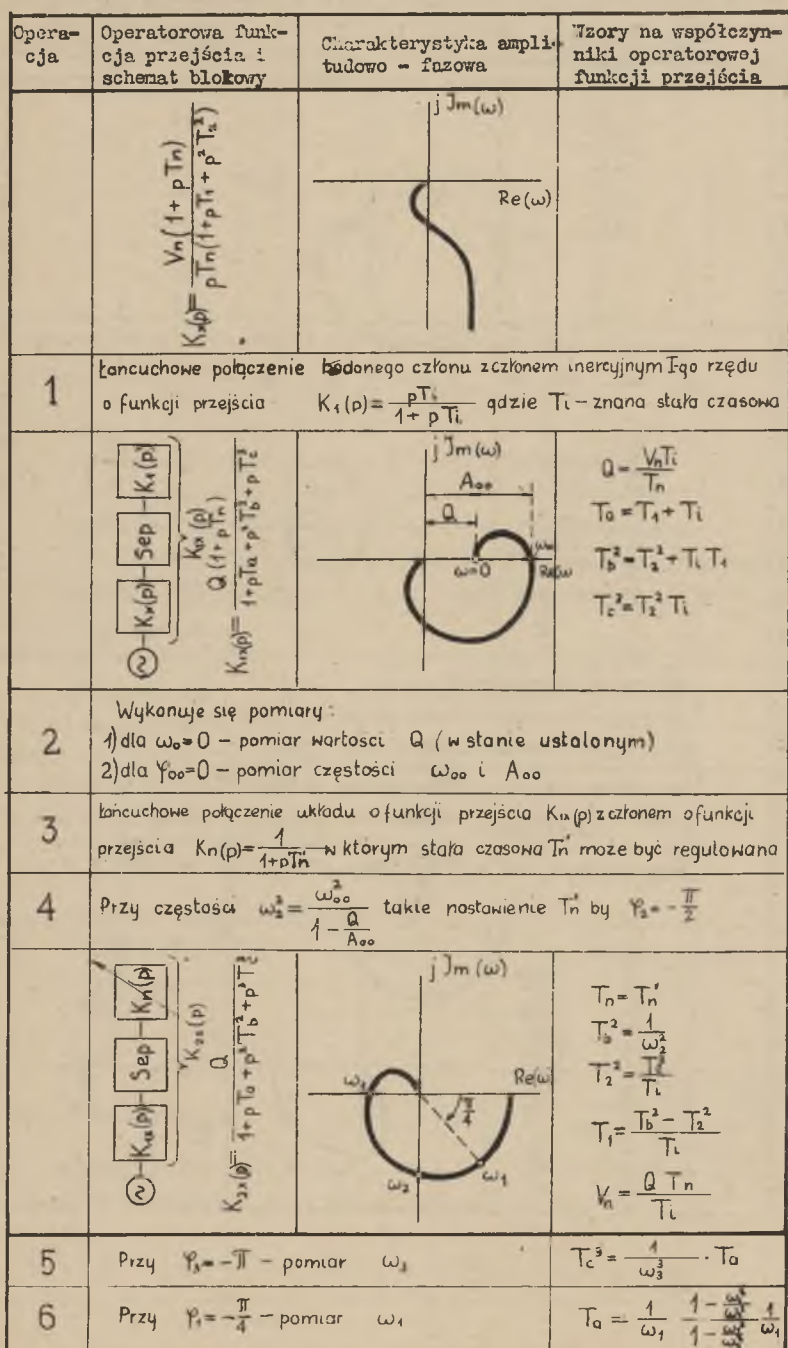 Opera-
cja
Operatorowa funk-
cja przejścia i
schemat blokowy
Charakterystyka ampli-
tudowo - fazowa
Wzory na współczyn-
niki operatorowej
funkcji przejścia
Kx(p)= Vn(1+ pTn) / pTn(1+pT1 + p²T2²)
j Jm(ω)
Re(ω)
1
Łancuchowe połączenie badanego członu z członem inercyjnym I-go rzędu
o funkcji przejścia K1(p)= pTi / 1+pTi gdzie Ti – znana stała czasowa
Kx(p) Sep K1(p)
K1x(p)
K1x(p)= Q(1+pTn) / 1+pTa+p²Tb²+pTc³
j Jm(ω)
A∞
Q
ω=0
Re(ω)
Q = VnTi / Tn
Ta = T1 + Ti
Tb² = T2² + Ti T1
Tc³ = T2² Ti
2
Wykonuje się pomiary:
1) dla ω₀=0 – pomiar wartosci Q (w stanie ustalonym)
2) dla φ₀₀=0 – pomiar częstości ω₀₀ i A₀₀
3
Łancuchowe połączenie układu o funkcji przejścia K1x(p) z członem o funkcji
przejścia Kn(p)= 1 / 1+pTn' w którym stała czasowa Tn' moze być regulowana
4
Przy częstości ω₂² = ω₀₀² / 1 - Q/A₀₀ takie nastawienie Tn' by φ₂ = - π/2
K1x(p) Sep Kn(p)
K2x(p)
K2x(p)= Q / 1+pTa+p²Tb²+p³Tc³
j Jm(ω)
Re(ω)
π/4
ω₂
ω₁
Tn = Tn'
Tb² = 1 / ω₂²
T2² = Tc³ / Ti
T1 = Tb² - T2² / Ti
Vn = Q Tn / Ti
5
Przy φ₃ = -π – pomiar ω₃
Tc³ = 1 / ω₃² · Ta
6
Przy φ₁ = - π/4 – pomiar ω₁
Ta = 1 / ω₁